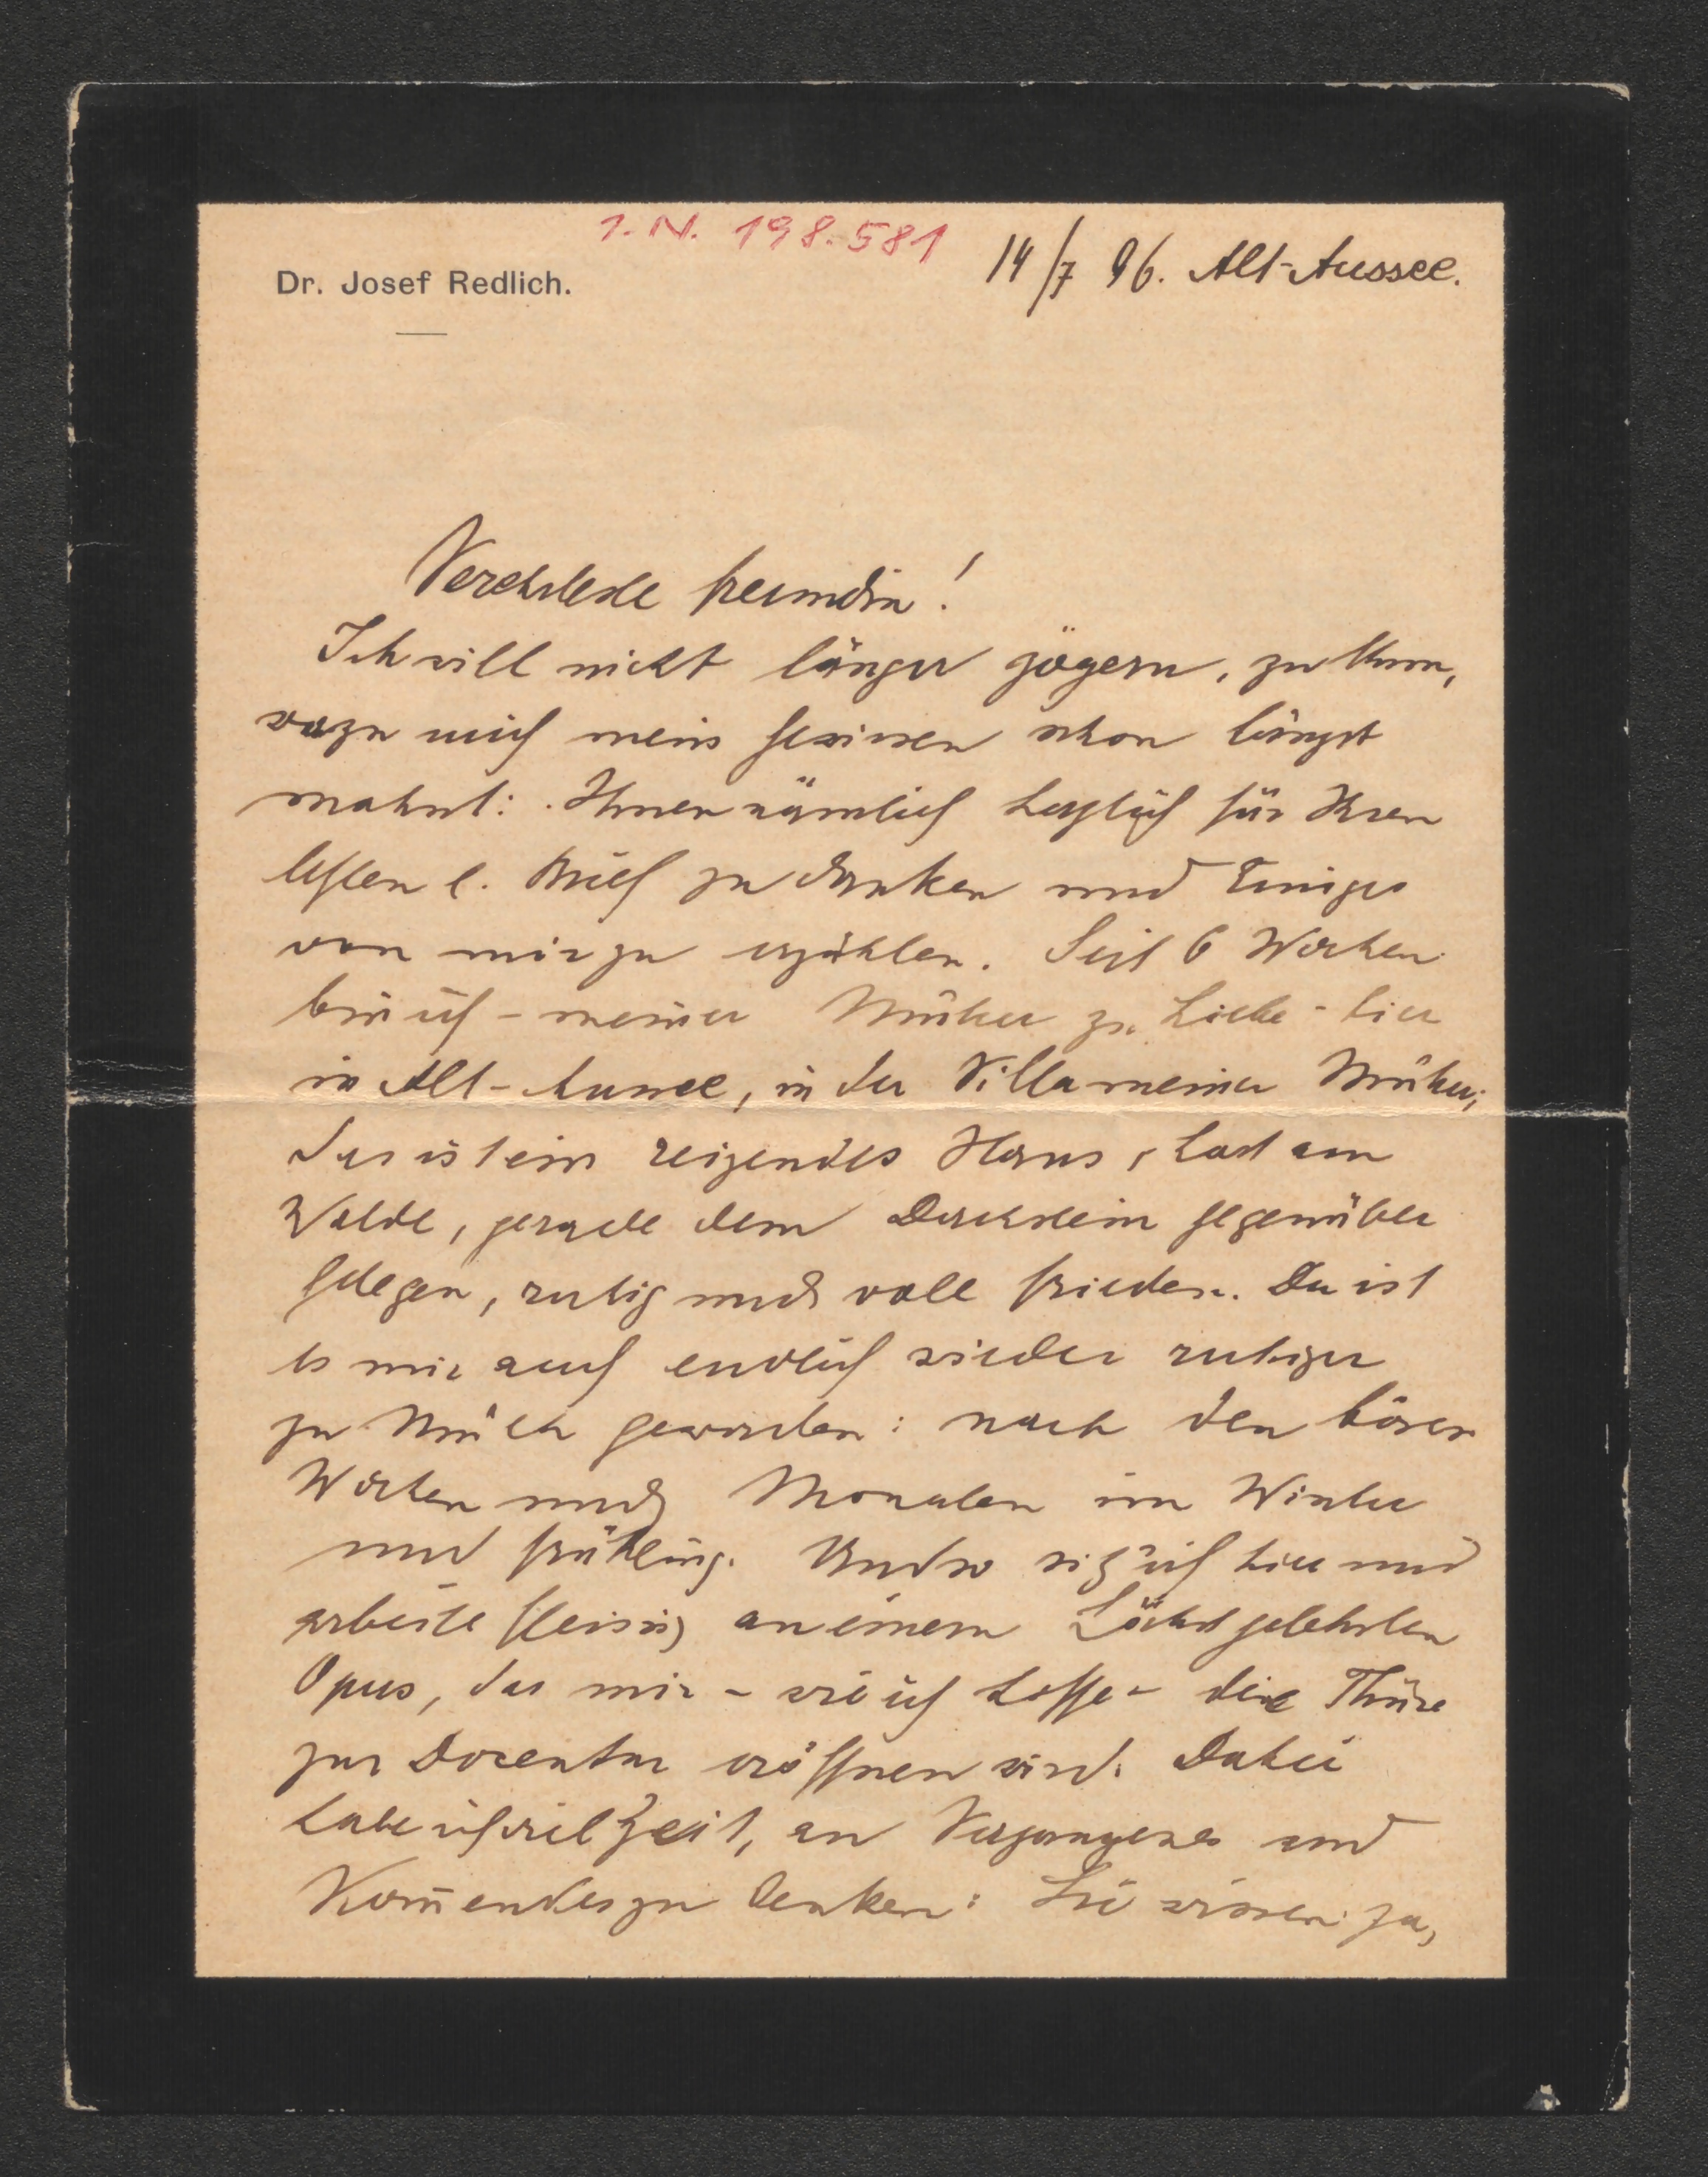 I. N. 198.581
14/7 96. Alt-Aussee.
Dr. Josef Redlich.
Verehrteste Freundin!
Ich will nicht länger zögern, zu thun,
wozu mich mein Gewissen schon längst
mahnt: Ihnen nämlich herzlich für Ihren
letzten l. Brief zu danken und Einiges
von mir zu erzählen. Seit 6 Wochen
bin ich – meiner Mutter zu Liebe – hier
in Alt-Aussee, in der Villa meiner Mutter;
das ist ein reizendes Haus, hart am
Walde, gerade dem Dachstein gegenüber
gelegen, ruhig und voll Frieden. Da ist
es mir auch endlich wieder ruhiger
zu Muthe geworden: nach den bösen
Wochen und Monaten im Winter
und Frühling. Und so sitz' ich hier und
arbeite fleissig an einem höchst gelehrten
Opus, das mir – wie ich hoffe – die Thüre
zur Docentur eröffnen wird. Dabei
habe ich viel Zeit, an Vergangenes und
Kom̄endes zu denken: Sie wissen ja,